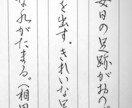 毎日の足跡がおの
を出す。きれいな足
なれがたまる。相田